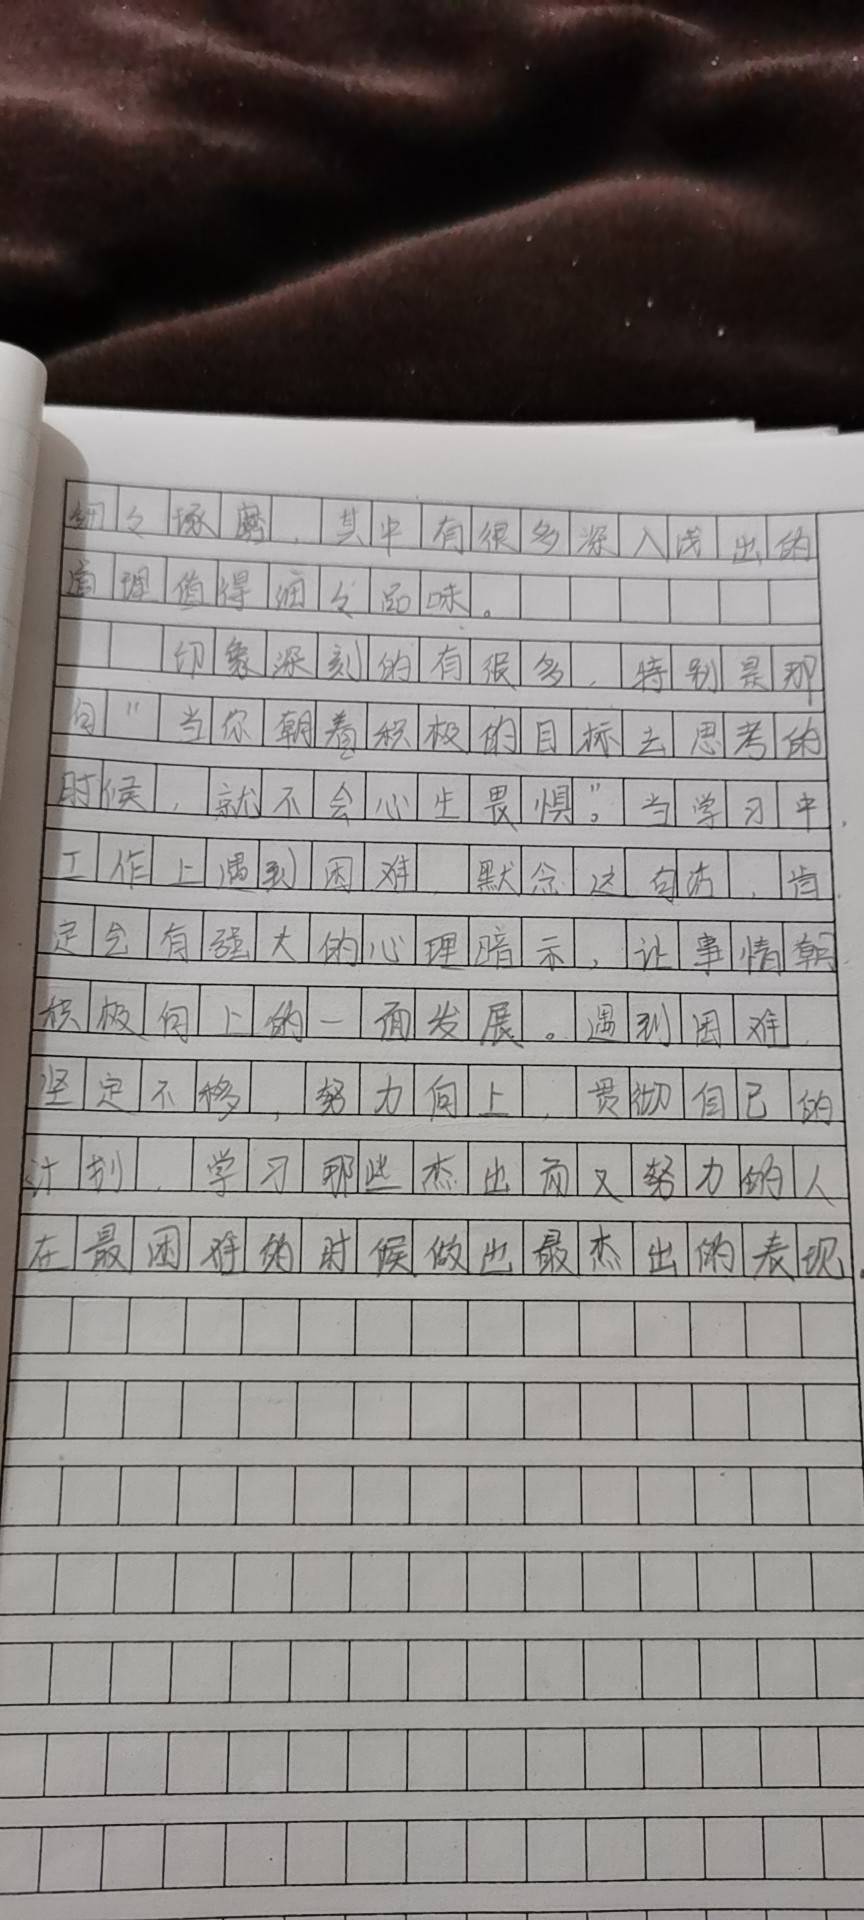 细々琢磨，其中有很多深入浅出的
道理值得细々品味。
印象深刻的有很多，特别是那
句“当你朝着积极的目标去思考的
时候，就不会心生畏惧”。当学习中，
工作上遇到困难，默念这句话，肯
定会有强大的心理暗示，让事情朝
积极向上的一面发展。遇到困难，
坚定不移，努力向上，贯彻自己的
计划，学习那些杰出而又努力的人
在最困难的时候做出最杰出的表现。